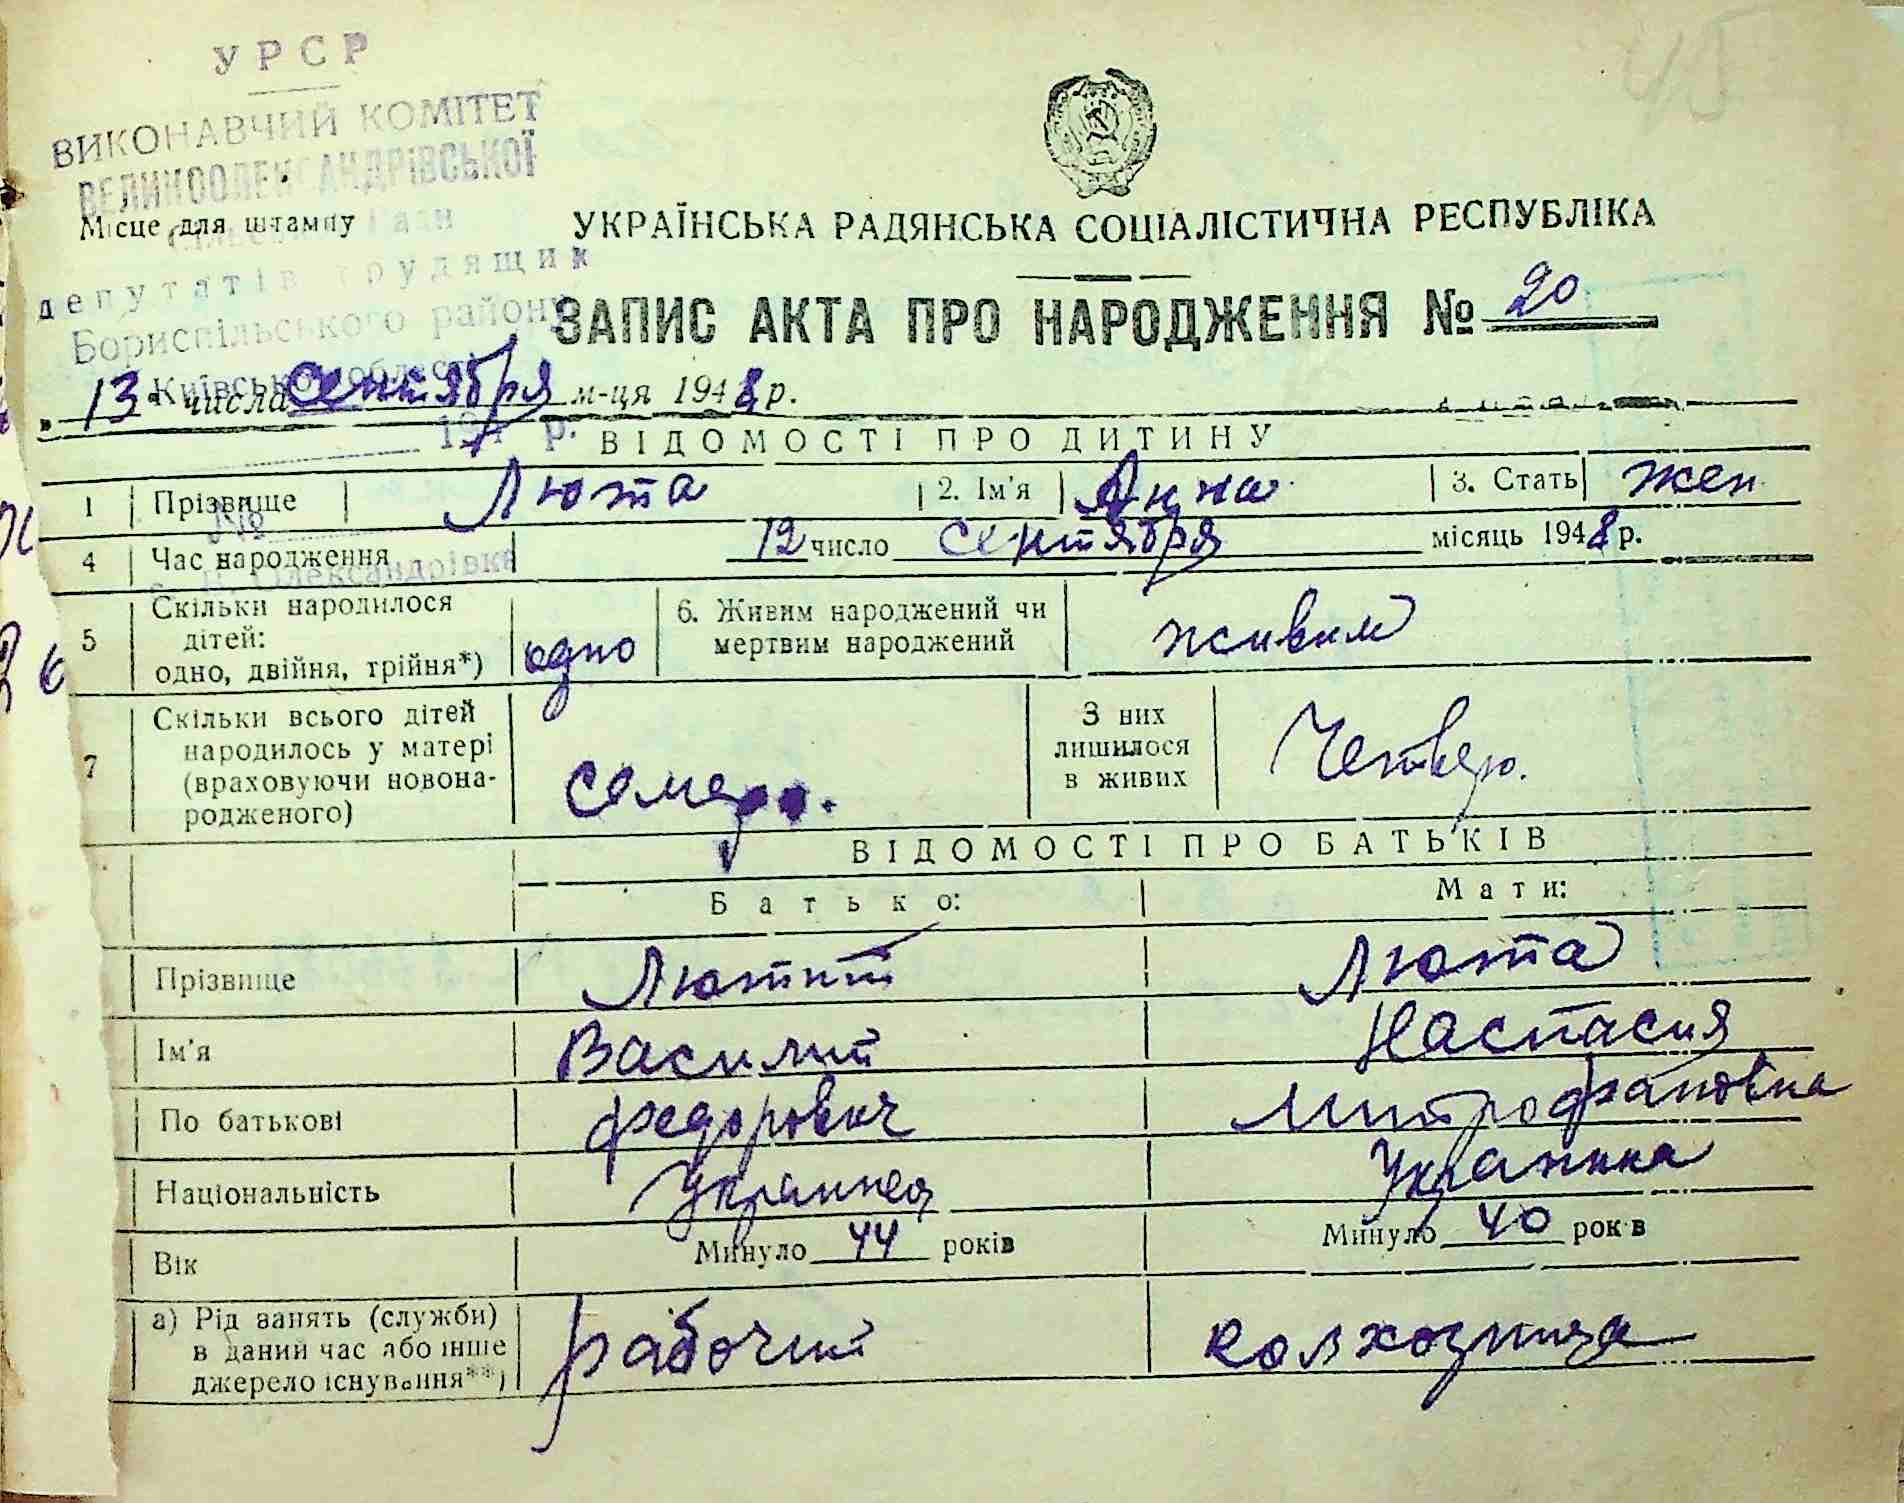 УРСР
ВИКОНАВЧИЙ КОМІТЕТ
ВЕЛИКООЛЕКСАНДРІВСЬКОЇ
Місце для штампу
УКРАЇНСЬКА РАДЯНСЬКА СОЦІАЛІСТИЧНА РЕСПУБЛІКА
депутатів трудящих
Бориспільського району
ЗАПИС АКТА ПРО НАРОДЖЕННЯ № 20
Київської області
„13" числа сентября м-ця 1948 р.
194 р.
ВІДОМОСТІ ПРО ДИТИНУ
1 Прізвище Люта 2. Ім'я Анна 3. Стать жен.
№
4 Час народження 12 число сентября місяць 1948 р.
с. В. Олександрівка
5 Скільки народилося дітей: одно, двійня, трійня*) одно 6. Живим народжений чи мертвим народжений живим
7 Скільки всього дітей народилось у матері (враховуючи новона-родженого) семеро. З них лишилося в живих Четверо.
ВІДОМОСТІ ПРО БАТЬКІВ
Батько: Мати:
Прізвище Лютий Люта
Ім'я Василий Настасия
По батькові Федорович Митрофановна
Національність Украинец Украинка
Вік Минуло 44 років Минуло 40 років
а) Рід занять (служби) в даний час або інше джерело існування**) рабочий колхозница